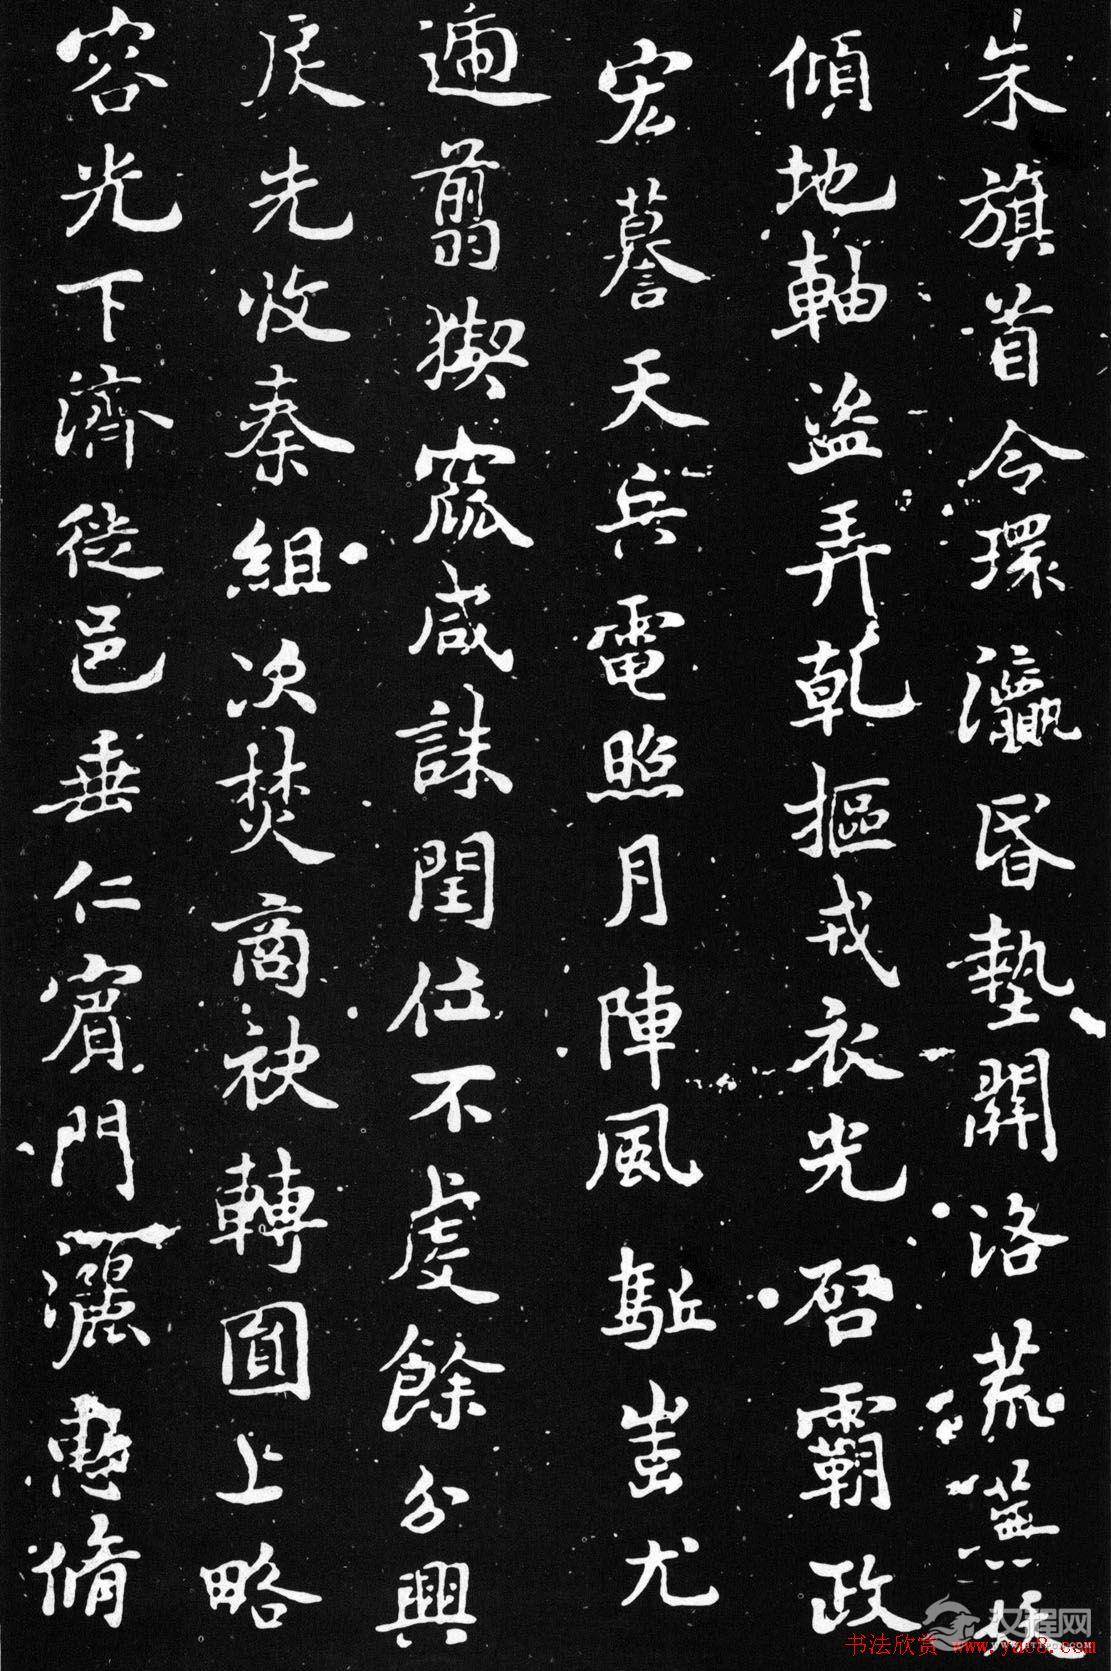 朱旗首令環瀛昏墊關洛荒蕪妖
傾地軸盜弄乾摳戎衣光啓霸政
宏謩天兵電照月陣風駈蚩尤
遄翦猰窳咸誅閏位不虔餘分興
戾先收秦組次焚商袂轉圓上略
容光下濟徙邑垂仁賓門灑惠脩
汉程网
书法欣赏 www.yac8.com